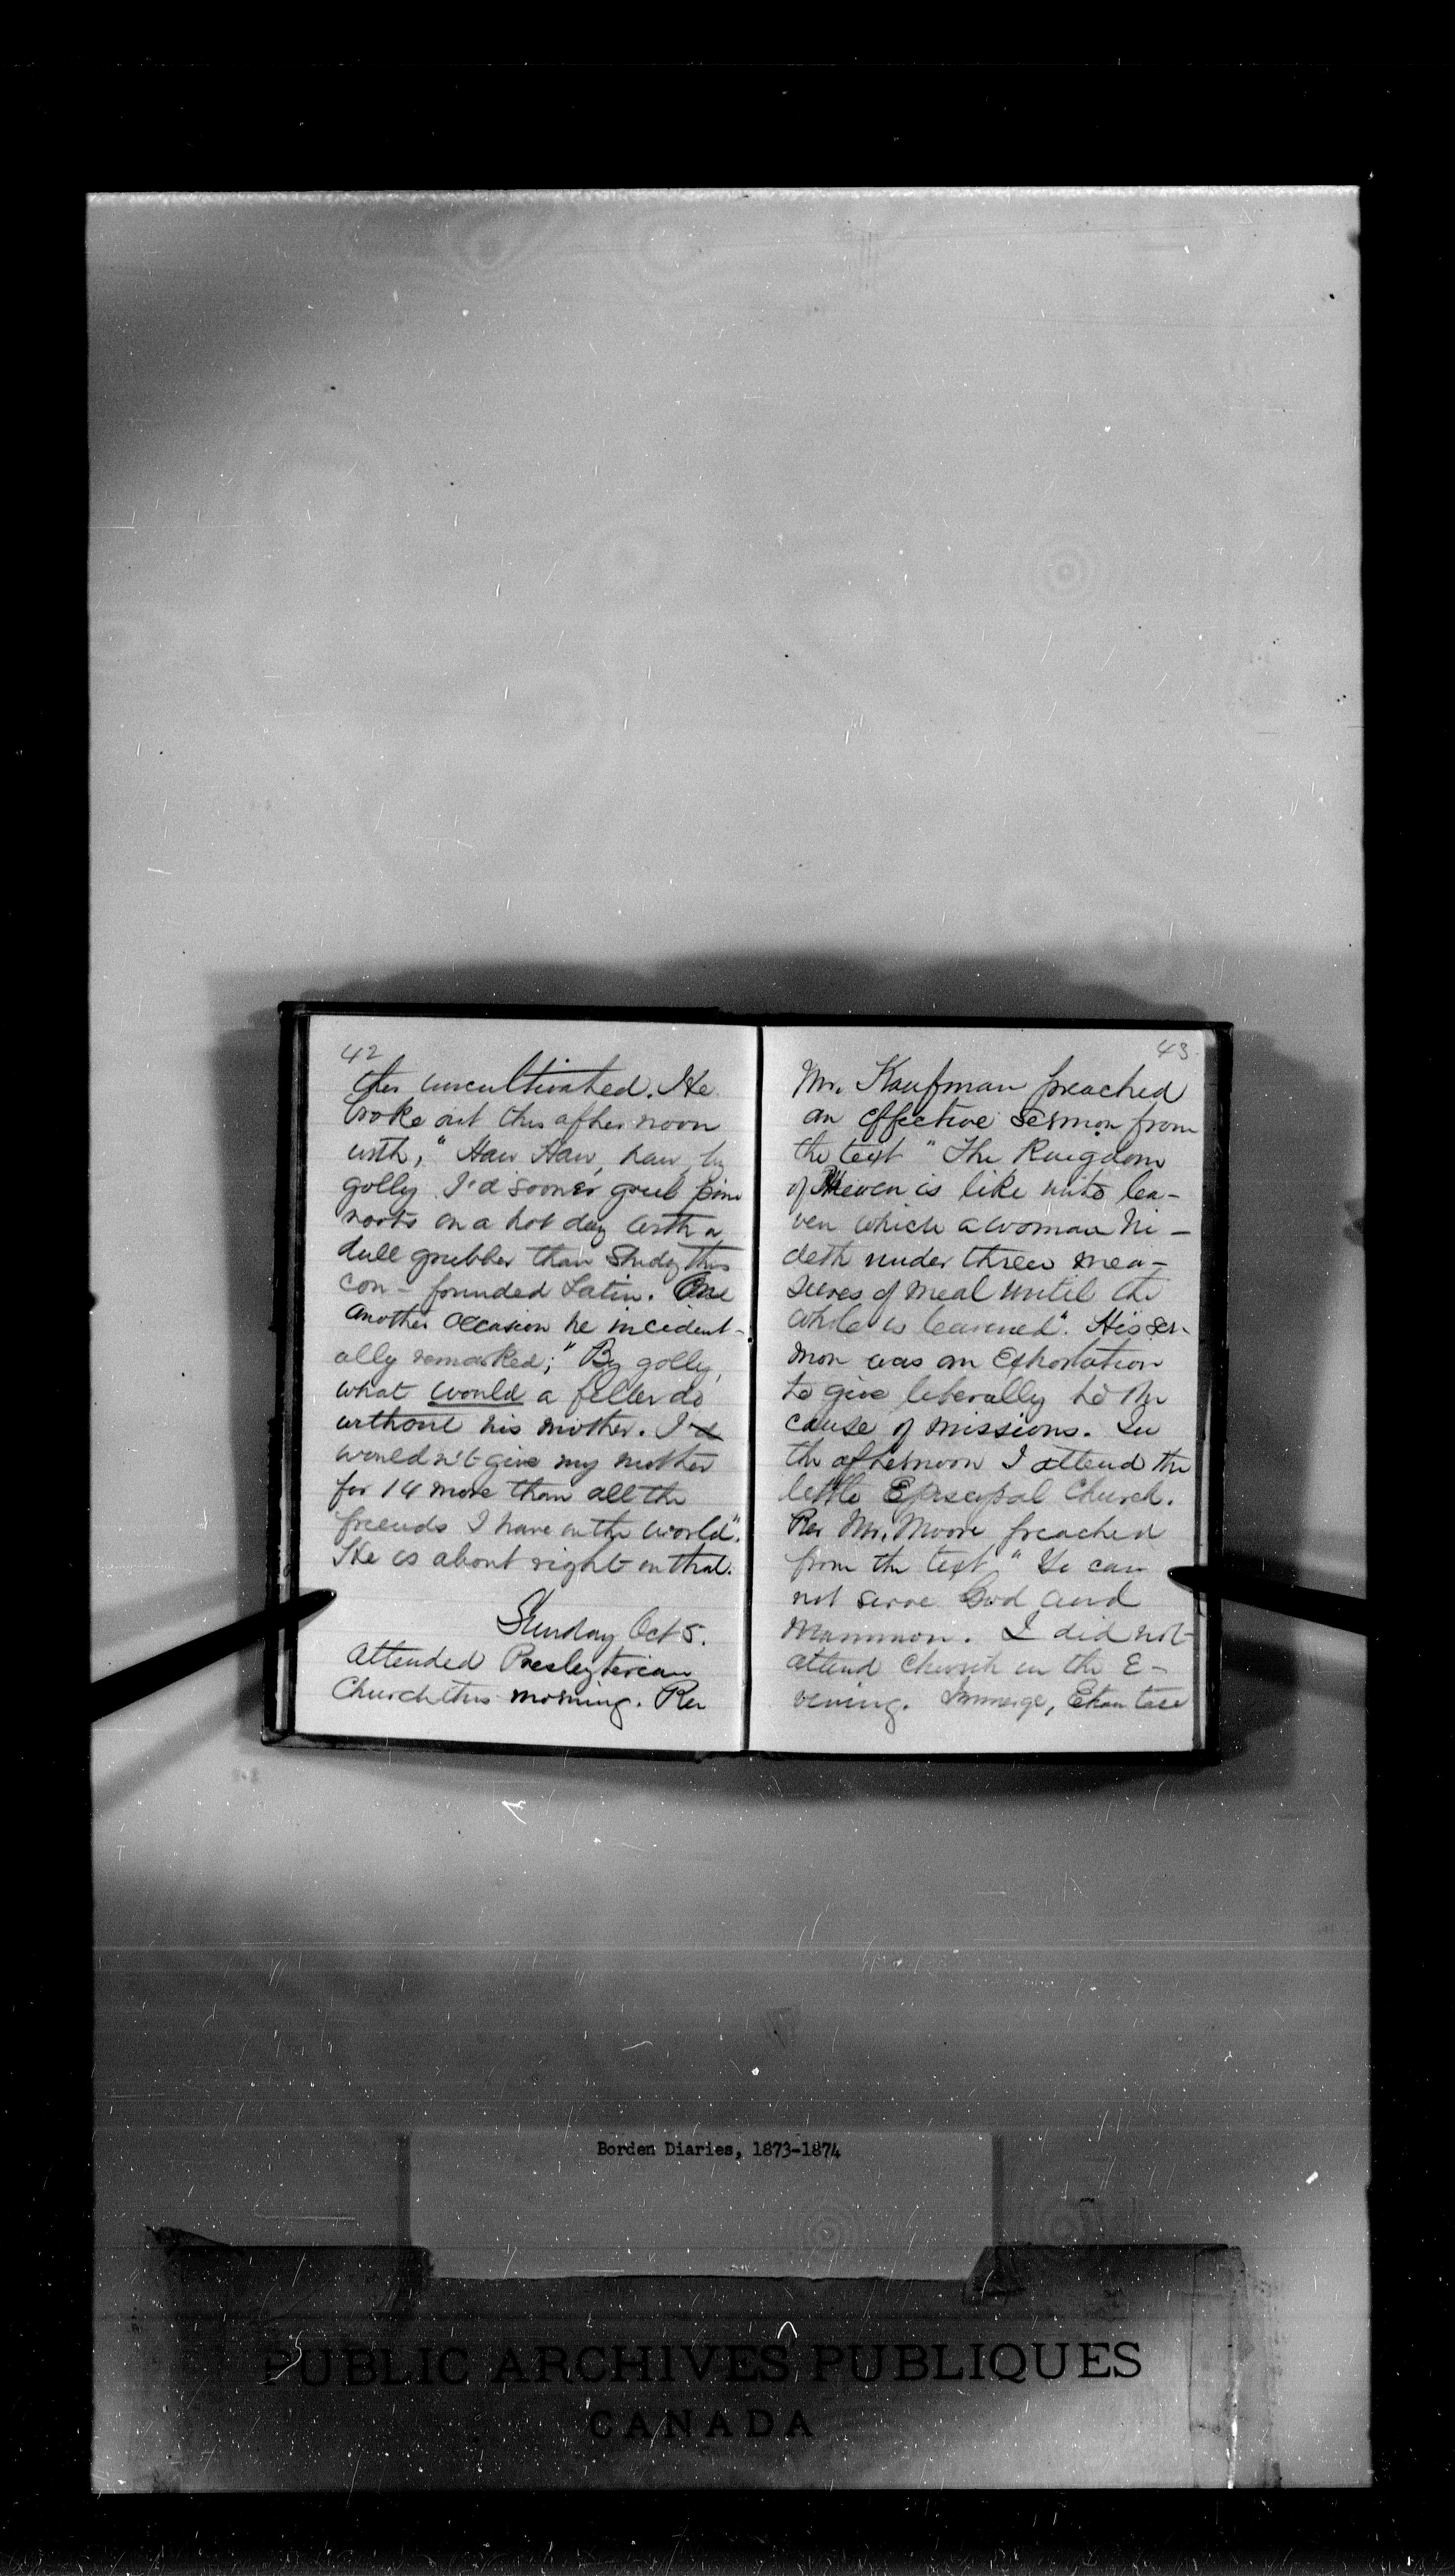 42
ther uncultivated. He
broke out this afternoon
with, "Haw Haw, haw, by
golly I'd sooner grub pine
roots on a hot day with a
dull grubber than study this
con-founded Latin. One
another occasion he incident-
ally remarked; "By golly,
what would a feller do
without his mother. I'd
wouldn't give my mother
for 14 more than all the
friends I have in the world".
He is about right on that.
Sunday Oct 5.
Attended Presbyterian
Church this morning. Rev
43
Mr. Kaufman preached
an effective sermon from
the text "The Kingdom
of Heven is like unto lea-
ven which a woman hi-
deth under three mea-
sures of meal until the
whole is leavened". His ser-
mon was an exhortation
to give liberally to the
cause of missions. In
the afternoon I attend the
little Episcopal Church.
Rev Mr. Moore preached
from the text "Ye can
not serve God and
Mammon. I did not
attend church in the E-
vening.
Borden Diaries, 1873-1874
PUBLIC ARCHIVES PUBLIQUES
CANADA